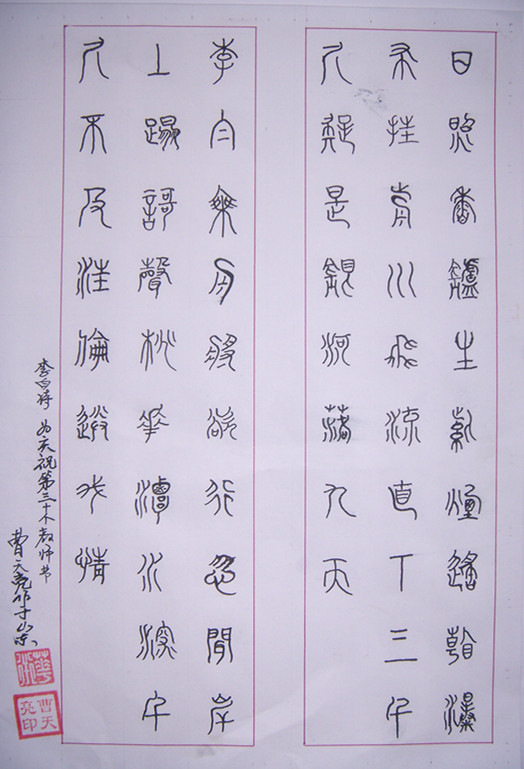 日照香爐生紫煙遙看瀑
布挂前川飛流直下三千
尺疑是銀河落九天
李白乘舟將欲行忽聞岸
上踏歌聲桃花潭水深千
尺不及汪倫送我情
李白诗 为庆祝第三十个教师节
曹天亮作于山东
曹天亮印